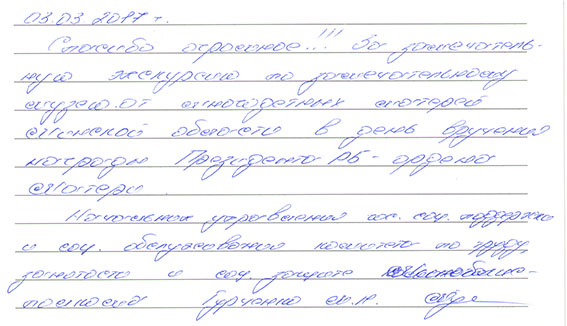 03.03.2017 г.
Спасибо огромное!!! За замечатель-
ную экскурсию по замечательному
музею от многодетных матерей
Минской области в день вручения
награды Президента РБ - ордена
Матери
Начальник управления соц. поддержки
и соц. обслуживания комитета по труду,
занятости и соц. защите Миноблис-
полкома Гурченко